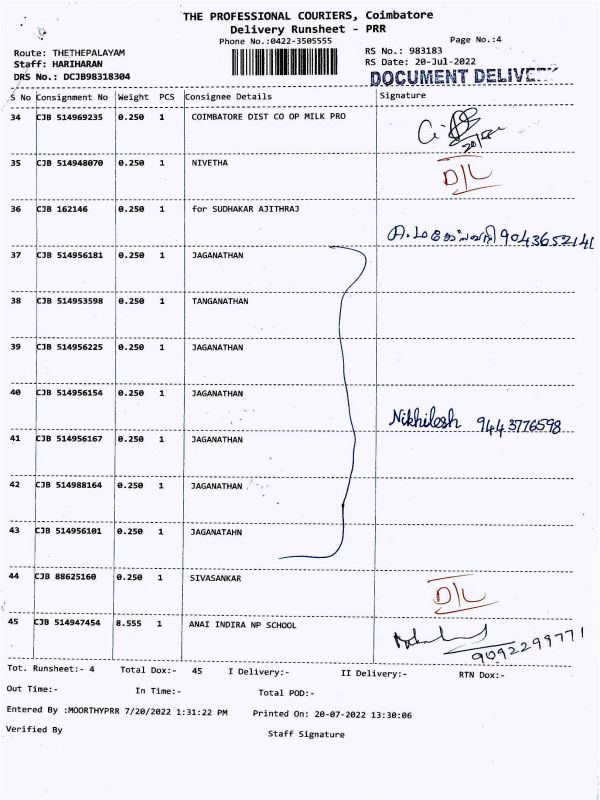 THE PROFESSIONAL COURIERS, Coimbatore
Delivery Runsheet - PRR
Phone No.:0422-3505555 Page No.:4
Route: THETHEPALAYAM RS No.: 983183
Staff: HARIHARAN RS Date: 20-Jul-2022
DRS No.: DCJB98318304 DOCUMENT DELIVERY
S No Consignment No Weight PCS Consignee Details Signature
34 CJB 514969235 0.250 1 COIMBATORE DIST CO OP MILK PRO
35 CJB 514948070 0.250 1 NIVETHA D/L
36 CJB 162146 0.250 1 for SUDHAKAR AJITHRAJ
9043652141
37 CJB 514956181 0.250 1 JAGANATHAN
38 CJB 514953598 0.250 1 TANGANATHAN
39 CJB 514956225 0.250 1 JAGANATHAN
40 CJB 514956154 0.250 1 JAGANATHAN
Nikhilesh 9443776598
41 CJB 514956167 0.250 1 JAGANATHAN
42 CJB 514988164 0.250 1 JAGANATHAN
43 CJB 514956101 0.250 1 JAGANATAHN
44 CJB 88625160 0.250 1 SIVASANKAR D/L
45 CJB 514947454 8.555 1 ANAI INDIRA NP SCHOOL
9092299771
Tot. Runsheet:- 4 Total Dox:- 45 I Delivery:- II Delivery:- RTN Dox:-
Out Time:- In Time:- Total POD:-
Entered By :MOORTHYPRR 7/20/2022 1:31:22 PM Printed On: 20-07-2022 13:30:06
Verified By Staff Signature